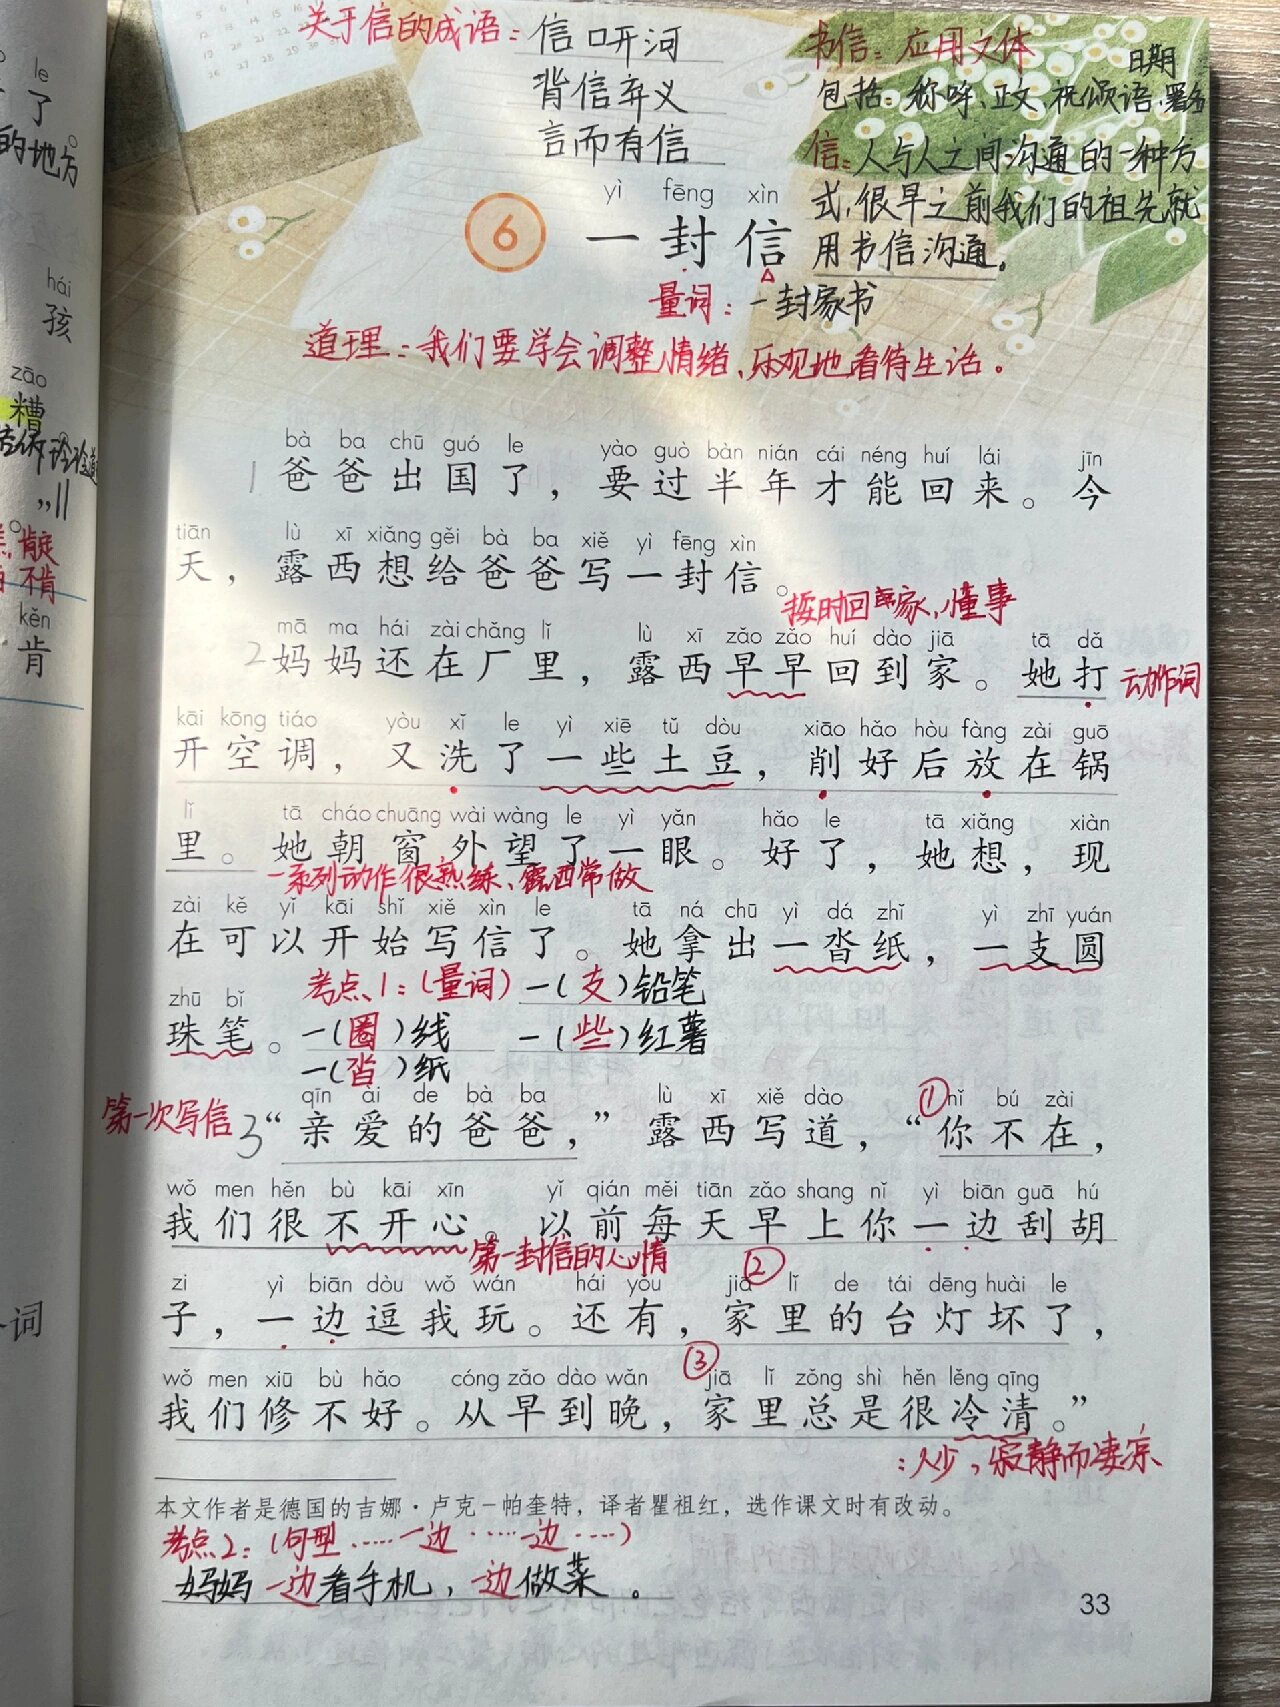 le
了
的地方。
hái
孩
zāo
糟
"
肯定
不肯
kěn
肯
词
关于信的成语：信口开河
背信弃义
言而有信
书信：应用文体
日期
包括：称呼、正文、祝颂语、署名
信：人与人之间沟通的一种方
式，很早之前我们的祖先就
用书信沟通。
yì fēng xìn
6 一封信
量词：一封家书
道理：我们要学会调整情绪、乐观地看待生活。
bà ba chū guó le yào guò bàn nián cái néng huí lái jīn
1 爸爸出国了，要过半年才能回来。今
tiān lù xī xiǎng gěi bà ba xiě yì fēng xìn
天，露西想给爸爸写一封信。
按时回家，懂事
mā ma hái zài chǎng lǐ lù xī zǎo zǎo huí dào jiā tā dǎ
2 妈妈还在厂里，露西早早回到家。她打
动作词
kāi kōng tiáo yòu xǐ le yì xiē tǔ dòu xiāo hǎo hòu fàng zài guō
开空调，又洗了一些土豆，削好后放在锅
lǐ tā cháo chuāng wài wàng le yì yǎn hǎo le tā xiǎng xiàn
里。她朝窗外望了一眼。好了，她想，现
一系列动作很熟练、露西常做
zài kě yǐ kāi shǐ xiě xìn le tā ná chū yì dá zhǐ yì zhī yuán
在可以开始写信了。她拿出一沓纸，一支圆
考点1：（量词）一（支）铅笔
zhū bǐ
珠笔。一（圈）线 一（些）红薯
一（沓）纸
qīn ài de bà ba lù xī xiě dào ① nǐ bú zài
第一次写信 3 “亲爱的爸爸，”露西写道，“你不在，
wǒ men hěn bù kāi xīn yǐ qián měi tiān zǎo shang nǐ yì biān guā hú
我们很不开心。以前每天早上你一边刮胡
第一封信的心情 ②
zi yì biān dòu wǒ wán hái yǒu jiā lǐ de tái dēng huài le
子，一边逗我玩。还有，家里的台灯坏了，
③
wǒ men xiū bù hǎo cóng zǎo dào wǎn jiā lǐ zǒng shì hěn lěng qīng
我们修不好。从早到晚，家里总是很冷清。”
：人少，寂静而凄凉
本文作者是德国的吉娜·卢克－帕奎特，译者瞿祖红，选作课文时有改动。
考点2：（句型……一边……一边……）
妈妈一边看手机，一边做菜。
33